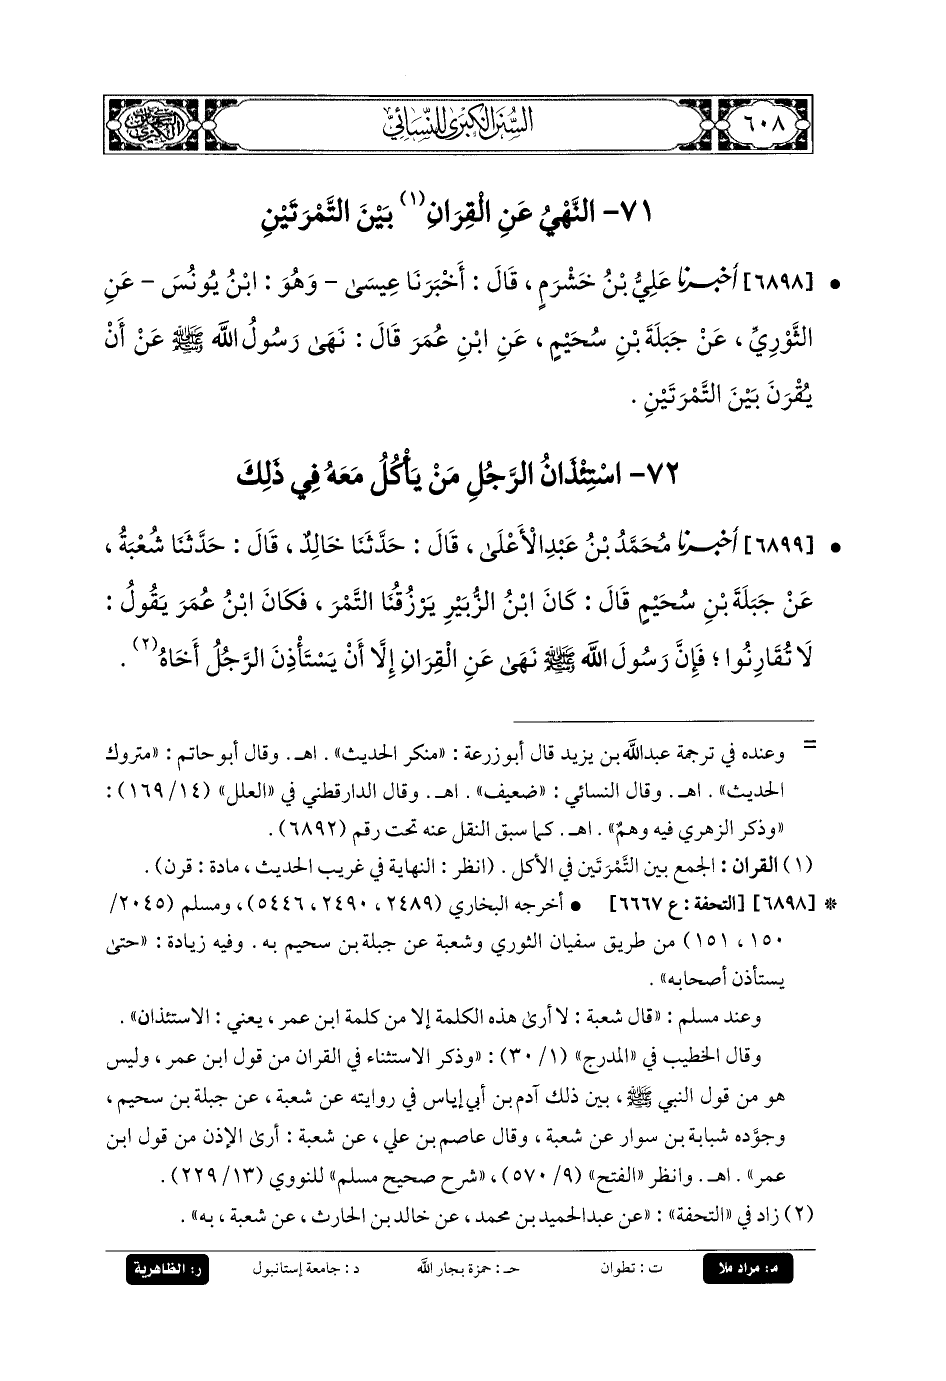 ٦٠٨
السُّنَنُ الْكُبْرَىٰ لِلنَّسَائِيِّ
٧١- النَّهْيُ عَنِ الْقِرَانِ(١) بَيْنَ التَّمْرَتَيْنِ
• [٦٨٩٨] أخبرنا عَلِيُّ بْنُ خَشْرَمٍ، قَالَ: أَخْبَرَنَا عِيسَىٰ - وَهُوَ: ابْنُ يُونُسَ - عَنِ
الثَّوْرِيِّ، عَنْ جَبَلَةَ بْنِ سُحَيْمٍ، عَنِ ابْنِ عُمَرَ قَالَ: نَهَىٰ رَسُولُ اللَّه ﷺ عَنْ أَنْ
يُقْرَنَ بَيْنَ التَّمْرَتَيْنِ.
٧٢- اسْتِئْذَانُ الرَّجُلِ مَنْ يَأْكُلُ مَعَهُ فِي ذَلِكَ
• [٦٨٩٩] أخبرنا مُحَمَّدُ بْنُ عَبْدِالْأَعْلَىٰ، قَالَ: حَدَّثَنَا خَالِدٌ، قَالَ: حَدَّثَنَا شُعْبَةُ،
عَنْ جَبَلَةَ بْنِ سُحَيْمٍ قَالَ: كَانَ ابْنُ الزُّبَيْرِ يَرْزُقُنَا التَّمْرَ، فَكَانَ ابْنُ عُمَرَ يَقُولُ:
لَا تُقَارِنُوا؛ فَإِنَّ رَسُولَ اللَّه ﷺ نَهَىٰ عَنِ الْقِرَانِ إِلَّا أَنْ يَسْتَأْذِنَ الرَّجُلُ أَخَاهُ(٢).
= وعنده في ترجمة عبداللَّه بن يزيد قال أبو زرعة: «منكر الحديث». اهـ. وقال أبو حاتم: «متروك
الحديث». اهـ. وقال النسائي: «ضعيف». اهـ. وقال الدارقطني في «العلل» (١٤/ ١٦٩):
«وذكر الزهري فيه وهمٌ». اهـ. كما سبق النقل عنه تحت رقم (٦٨٩٢).
(١) القران: الجمع بين التَّمْرَتَين في الأكل. (انظر: النهاية في غريب الحديث، مادة: قرن).
* [٦٨٩٨] [التحفة: ع ٦٦٦٧] • أخرجه البخاري (٢٤٨٩، ٢٤٩٠، ٥٤٤٦)، ومسلم (٢٠٤٥/
١٥٠، ١٥١) من طريق سفيان الثوري وشعبة عن جبلة بن سحيم به. وفيه زيادة: «حتىٰ
يستأذن أصحابه».
وعند مسلم: «قال شعبة: لا أرىٰ هذه الكلمة إلا من كلمة ابن عمر، يعني: الاستئذان».
وقال الخطيب في «المدرج» (١/ ٣٠): «وذكر الاستثناء في القران من قول ابن عمر، وليس
هو من قول النبي ﷺ، بين ذلك آدم بن أبي إياس في روايته عن شعبة، عن جبلة بن سحيم،
وجوَّده شبابة بن سوار عن شعبة، وقال عاصم بن علي، عن شعبة: أرىٰ الإذن من قول ابن
عمر». اهـ. وانظر «الفتح» (٩/ ٥٧٠)، «شرح صحيح مسلم» للنووي (١٣/ ٢٢٩).
(٢) زاد في «التحفة»: «عن عبدالحميد بن محمد، عن خالد بن الحارث، عن شعبة، به».
م: مراد ملا ت: تطوان حـ: حمزة بجار اللَّه د: جامعة إستانبول ر: الظاهرية